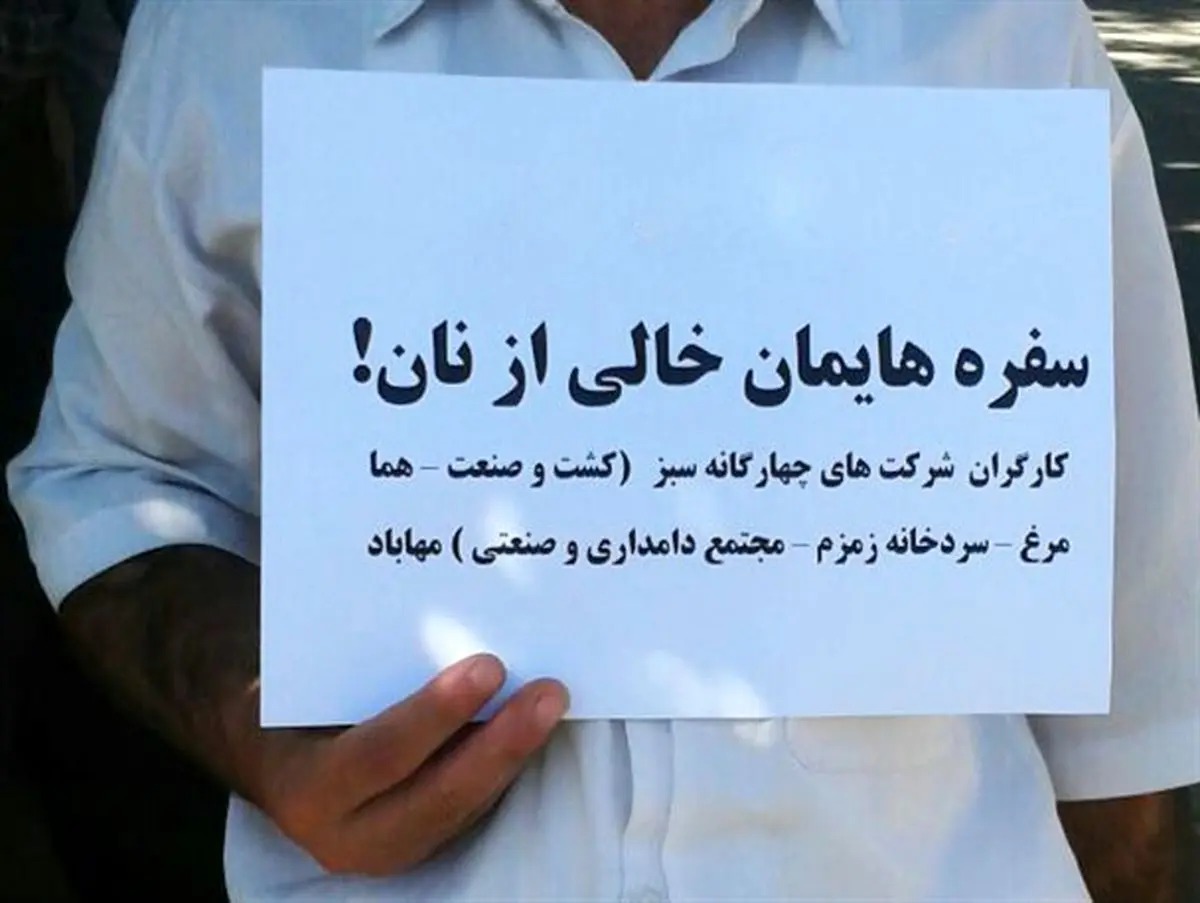 سفره هایمان خالی از نان!
کارگران شرکت های چهارگانه سبز (کشت و صنعت – هما
مرغ – سردخانه زمزم – مجتمع دامداری و صنعتی ) مهاباد